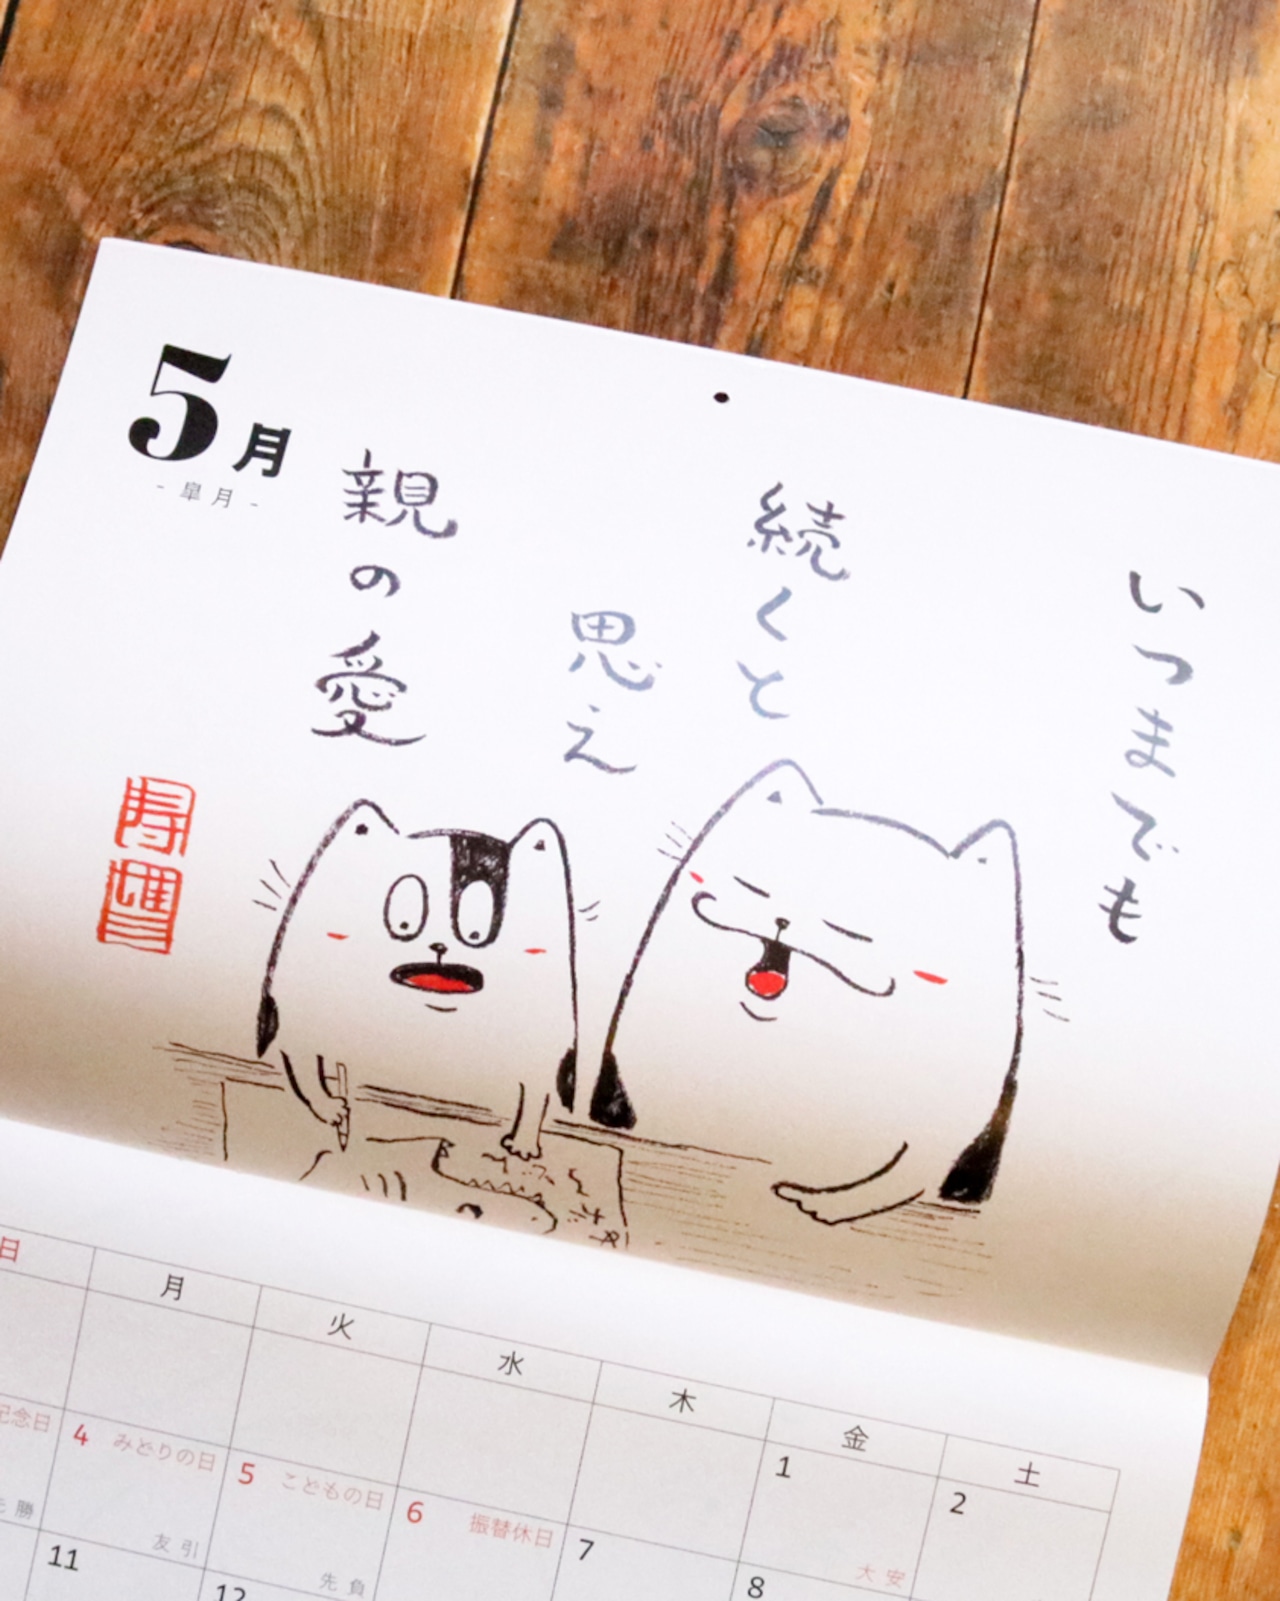 5月
- 皐月 -
いつまでも
続くと
思え
親の愛
日 月 火 水 木 金 土
1 2
記念日 4 みどりの日 5 こどもの日 6 振替休日 7 8
先勝 友引 先負 大安
11 12